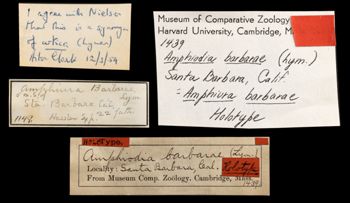 I agree with Nielsen
that this is a synonym
of urtica (Lyman)
12/3/59
Amphiura Barbarae
Lyman
Sta. Barbara Cal.
22 fath.
1149.
Museum of Comparative Zoology
Harvard University, Cambridge, M
1439
Amphiodia barbarae (Lym.)
Santa Barbara, Calif
= Amphiura barbarae
Holotype
Holotype.
Amphiodia barbarae (Lym.)
Locality: Santa Barbara, Cal. Holotype
From Museum Comp. Zoölogy. Cambridge, Mass.
1439.